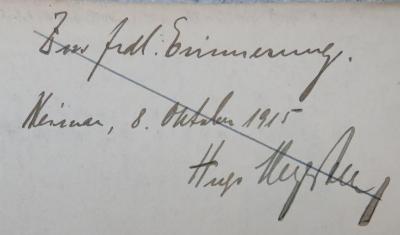 Zur frdl. Erinnerung.
Weimar, 8. Oktober 1915
Hugo